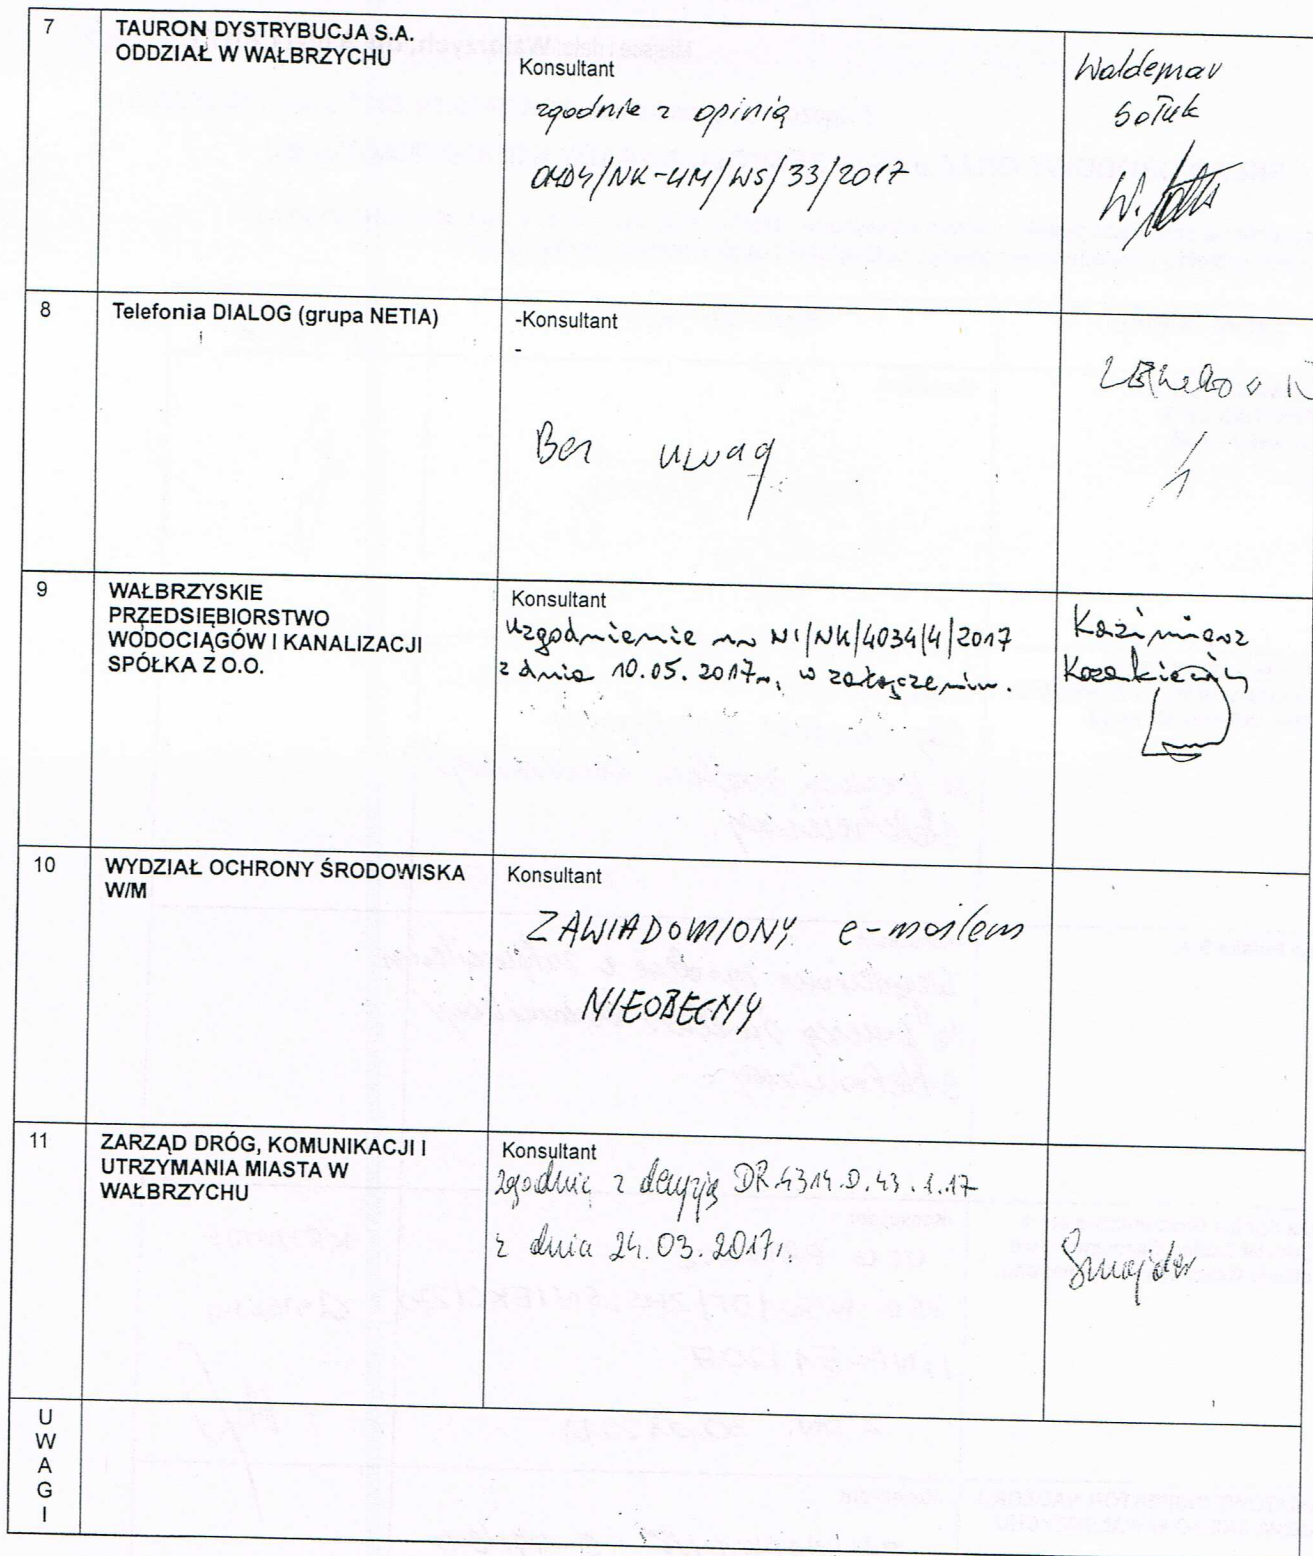 7
TAURON DYSTRYBUCJA S.A.
ODDZIAŁ W WAŁBRZYCHU
Konsultant
zgodnie z opinią
/NK-UM/WS/33/2017
Waldemar
Sołuk
8
Telefonia DIALOG (grupa NETIA)
-Konsultant
-
Bez uwag
9
WAŁBRZYSKIE
PRZEDSIĘBIORSTWO
WODOCIĄGÓW I KANALIZACJI
SPÓŁKA Z O.O.
Konsultant
Uzgodnienie nr NI/NK/4034/4/2017
z dnia 10.05.2017r, w załączeniu.
Kazimierz
10
WYDZIAŁ OCHRONY ŚRODOWISKA
W/M
Konsultant
ZAWIADOMIONY e-mailem
NIEOBECNY
11
ZARZĄD DRÓG, KOMUNIKACJI I
UTRZYMANIA MIASTA W
WAŁBRZYCHU
Konsultant
zgodnie z decyzją DR.4314.D.43.1.17
z dnia 24.03.2017r.
U
W
A
G
I